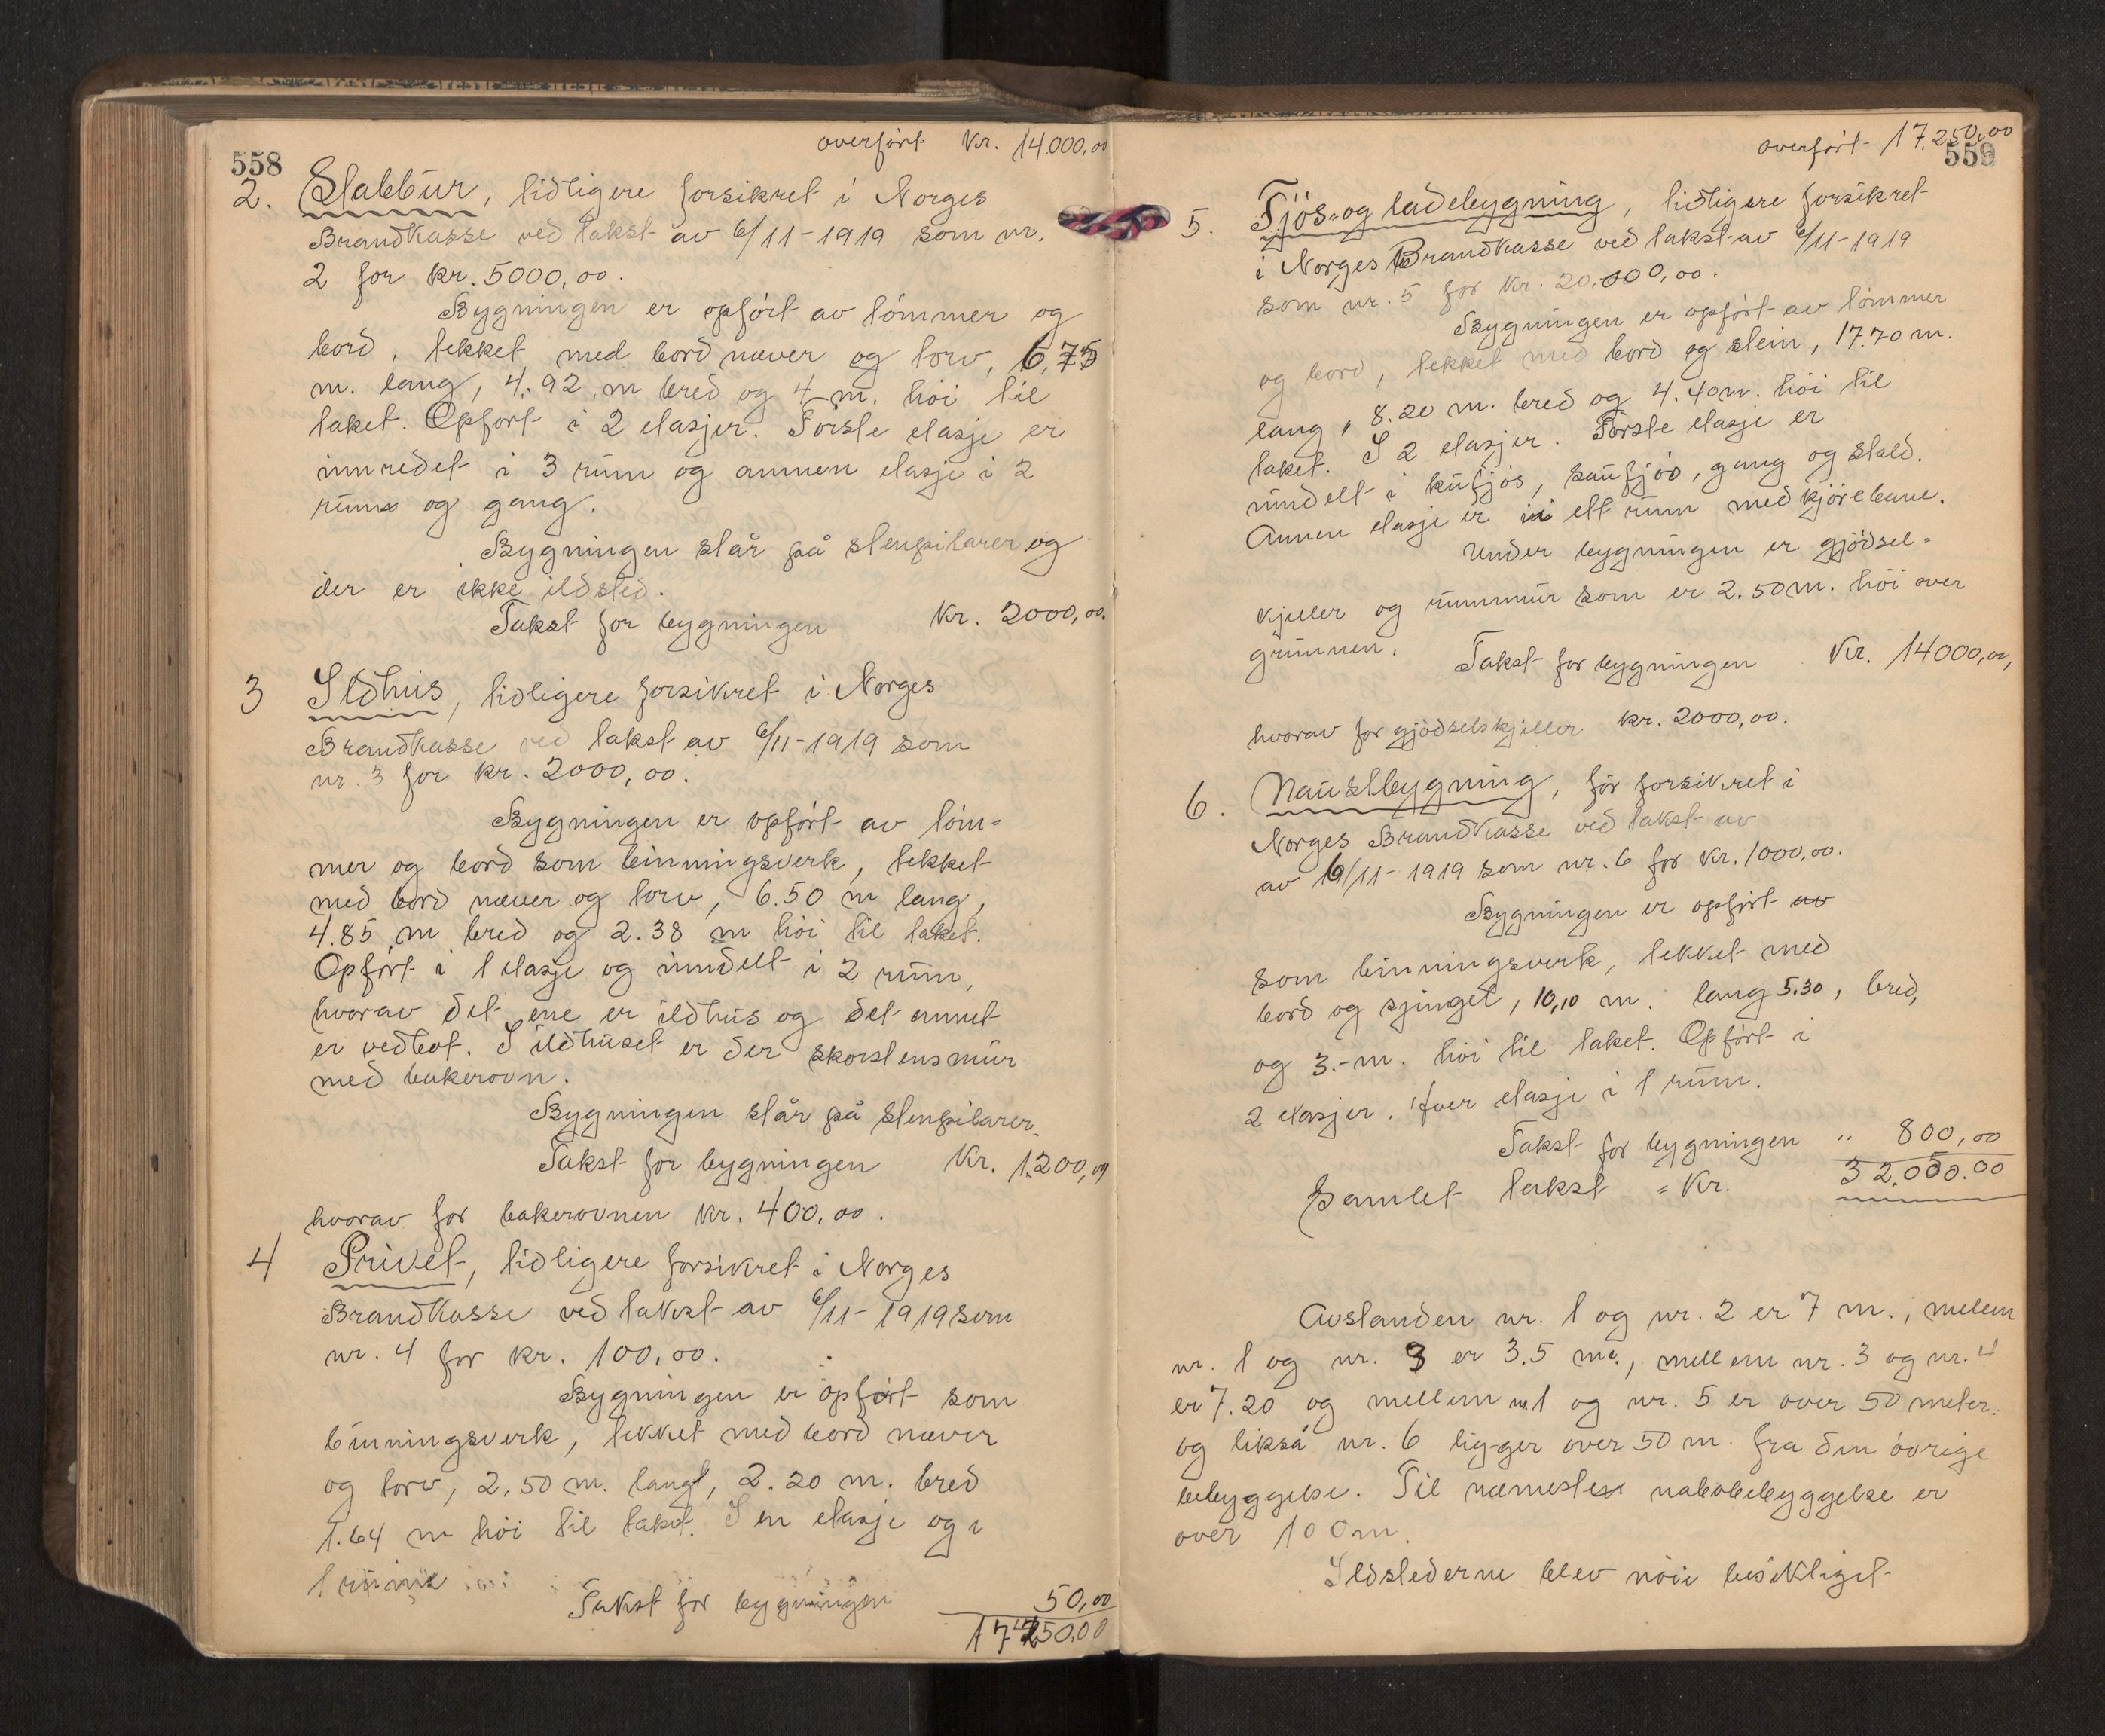 558
overført Kr. 14000,00
2. Stabbur, tidligere forsikret i Norges
Brandkasse ved takst av 6/11-1919 som nr.
2 for kr. 5000,00.
Bygningen er opført av tømmer og
bord, tekket med bord næver og torv, 6,75
m. lang, 4.92 m bred og 4 m. høi til
taket. Opført i 2 etasjer. Første etasje er
innredet i 3 rum og annen etasje i 2
rum og gang.
Bygningen står på stenpilarer og
der er ikke ildsted.
Takst for bygningen Kr. 2000,00.
3 Ildhus, tidligere forsikret i Norges
Brandkasse ved takst av 6/11-1919 som
nr. 3 for kr. 2000,00.
Bygningen er opført av tøm-
mer og bord som binningsverk, tekket
med bord næver og torv, 6.50 m lang,
4.85 m bred og 2.38 m høi til taket.
Opført i 1 etasje og inndelt i 2 rum,
hvorav det ene er ildhus og det annet
er vedbot. I ildhuset er der skorstensmur
med bakerovn.
Bygningen står på stenpilarer.
Takst for bygningen Kr. 1200,00
hvorav for bakerovnen Kr. 400,00.
4 Privet, tidligere forsikret i Norges
Brandkasse ved takst av 6/11-1919 som
nr. 4 for kr. 100,00.
Bygningen er opført som
binningsverk, tekket med bord næver
og torv, 2.50 m. langt, 2.20 m. bred
1.64 m høi til taket. I en etasje og i
1 rum
Takst for bygningen 50,00
17250,00
overført 17.250,00
559
5. Fjøs- og ladebygning, tidligere forsikret
i Norges Brandkasse ved takst av 6/11-1919
som nr. 5 for Kr. 20.000,00.
Bygningen er opført av tømmer
og bord, tekket med bord og stein, 17.70 m.
lang, 8.20 m. bred og 4.40 m. høi til
taket. I 2 etasjer. Første etasje er
inndelt i kufjøs, saufjøs, gang og stald.
Annen etasje er i ett rum med kjørebane.
Under bygningen er gjødsel-
kjeller og rummur som er 2.50 m. høi over
grunnen.
Takst for bygningen Kr. 14000,00,
hvorav for gjødselskjeller kr. 2000,00.
6. Naustbygning, før forsikret i
Norges Brandkasse ved takst av
av 6/11-1919 som nr. 6 for Kr. 1000,00.
Bygningen er opført av
som binningsverk, tekket med
bord og spinget, 10,10 m. lang 5.30, bred,
og 3.- m. høi til taket. Opført i
2 etasjer. Hver etasje i 1 rum.
Takst for bygningen " 800,00
Samlet takst = Kr. 32.050.00
Avstanden nr. 1 og nr. 2 er 7 m., melem
nr. 1 og nr. 3 er 3.5 m., mellem nr. 3 og nr. 4
er 7.20 og mellem nr 1 og nr. 5 er over 50 meter.
og likså nr. 6 ligger over 50 m. fra den øvrige
bebyggelse. Til næmeste nabobebyggelse er
over 100 m.
Ildstederne blev nøie besiktiget